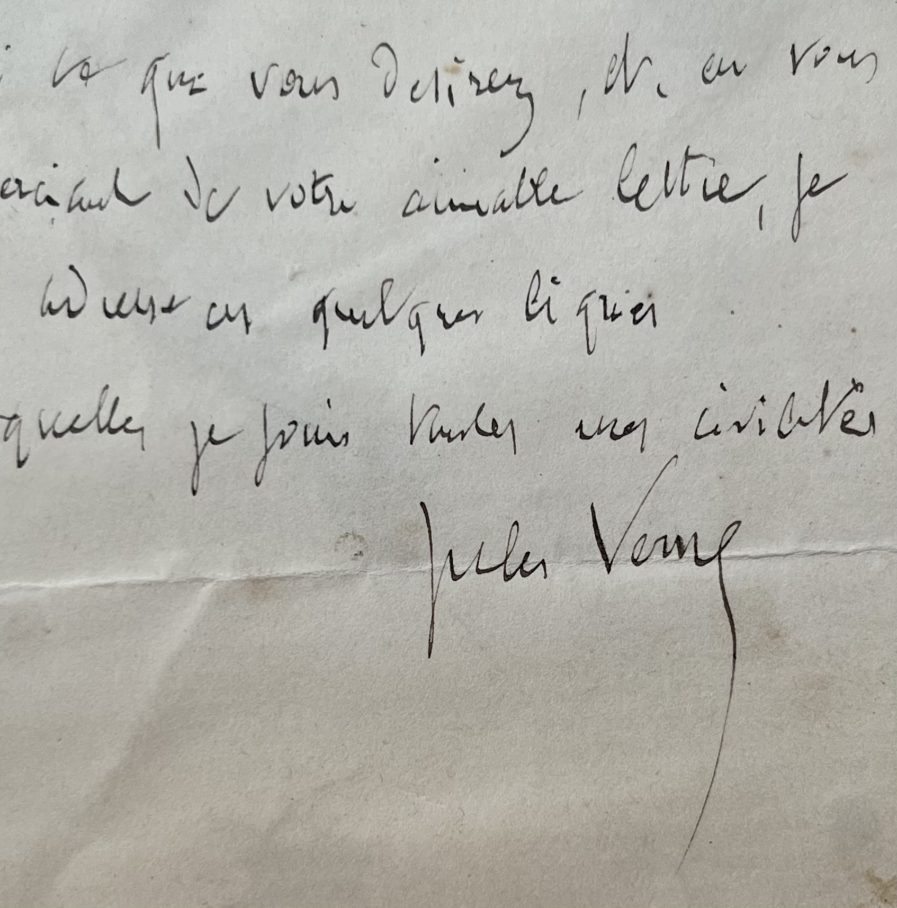 ce que vous désirez, et, en vous
erciant de votre aimable lettre, je
adresse ces quelques lignes
quelles je joins toutes mes civilités
Jules Verne